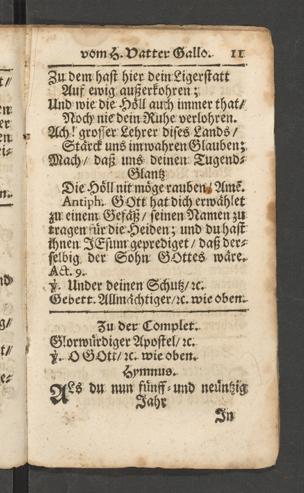 vom H. Vatter Gallo. 11
Zu dem hast hier dein Ligerstatt
Auf ewig außerkohren;
Und wie die Höll auch immer that/
Noch nie dein Ruhe verlohren.
Ach! grosser Lehrer dises Lands/
Stärck uns im wahren Glauben;
Mach/ daß uns deinen Tugend-
Glantz
Die Höll nit möge rauben, Amē.
Antiph. GOtt hat dich erwählet
zu einem Gefäß/ seinen Namen zu
tragen für die Heiden; und du hast
ihnen JEsum geprediget/ daß der-
selbig der Sohn GOttes wäre.
Act. 9.
℣. Under deinen Schutz/ ꝛc.
Gebett. Allmächtiger/ ꝛc. wie oben.
Zu der Complet.
Glorwürdiger Apostel/ ꝛc.
℣. O GOtt/ ꝛc. wie oben.
Hymnus.
ALs du nun fünff- und neüntzig
Jahr
In